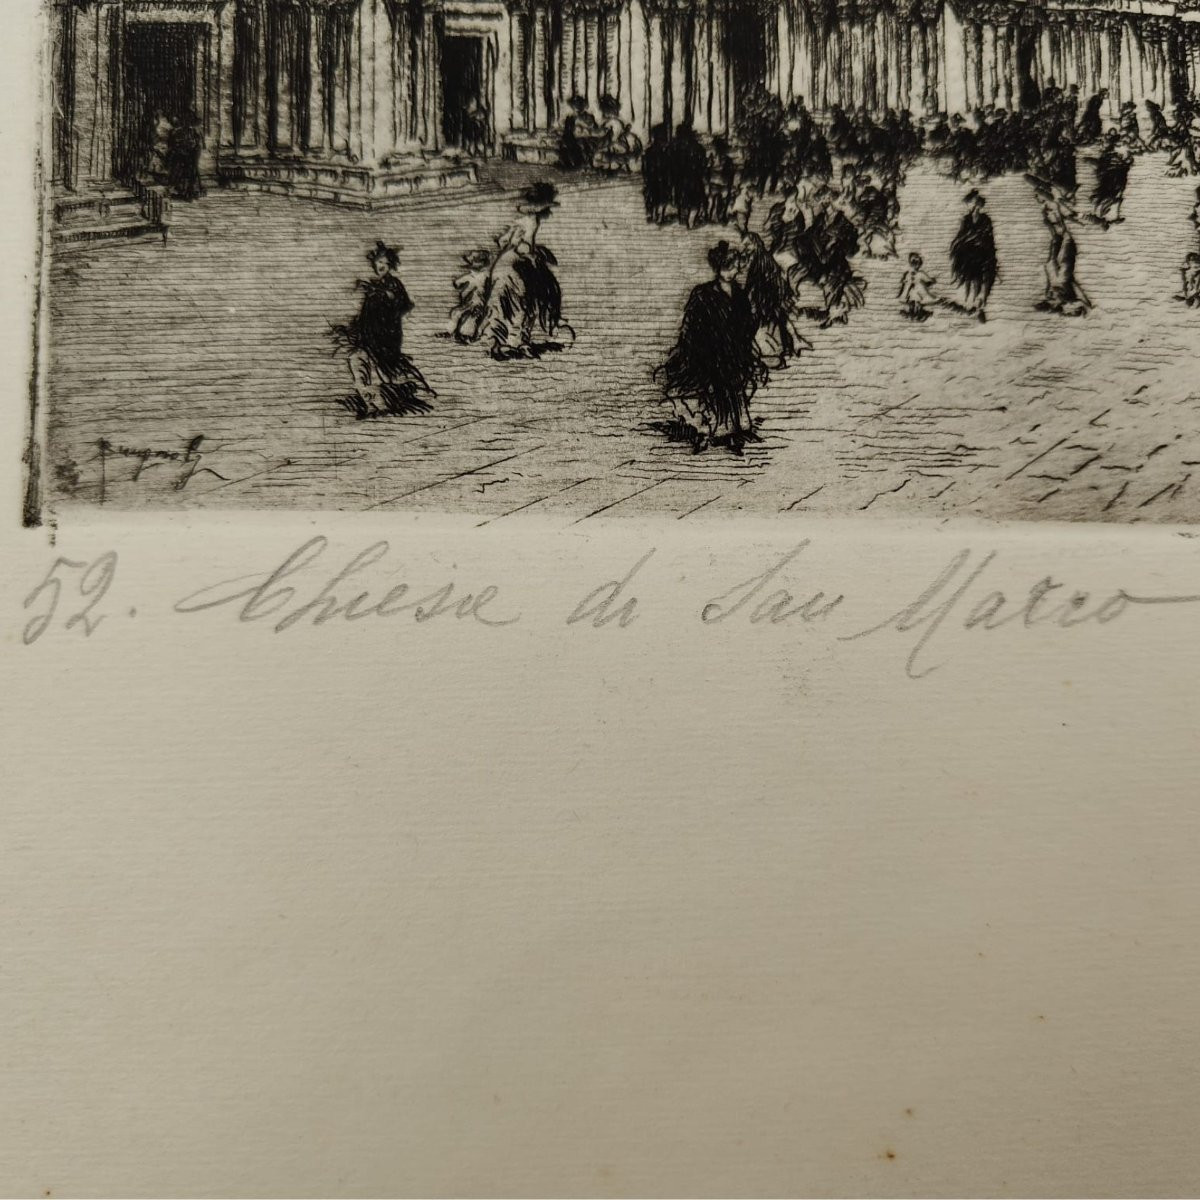 52. Chiesa di San Marco